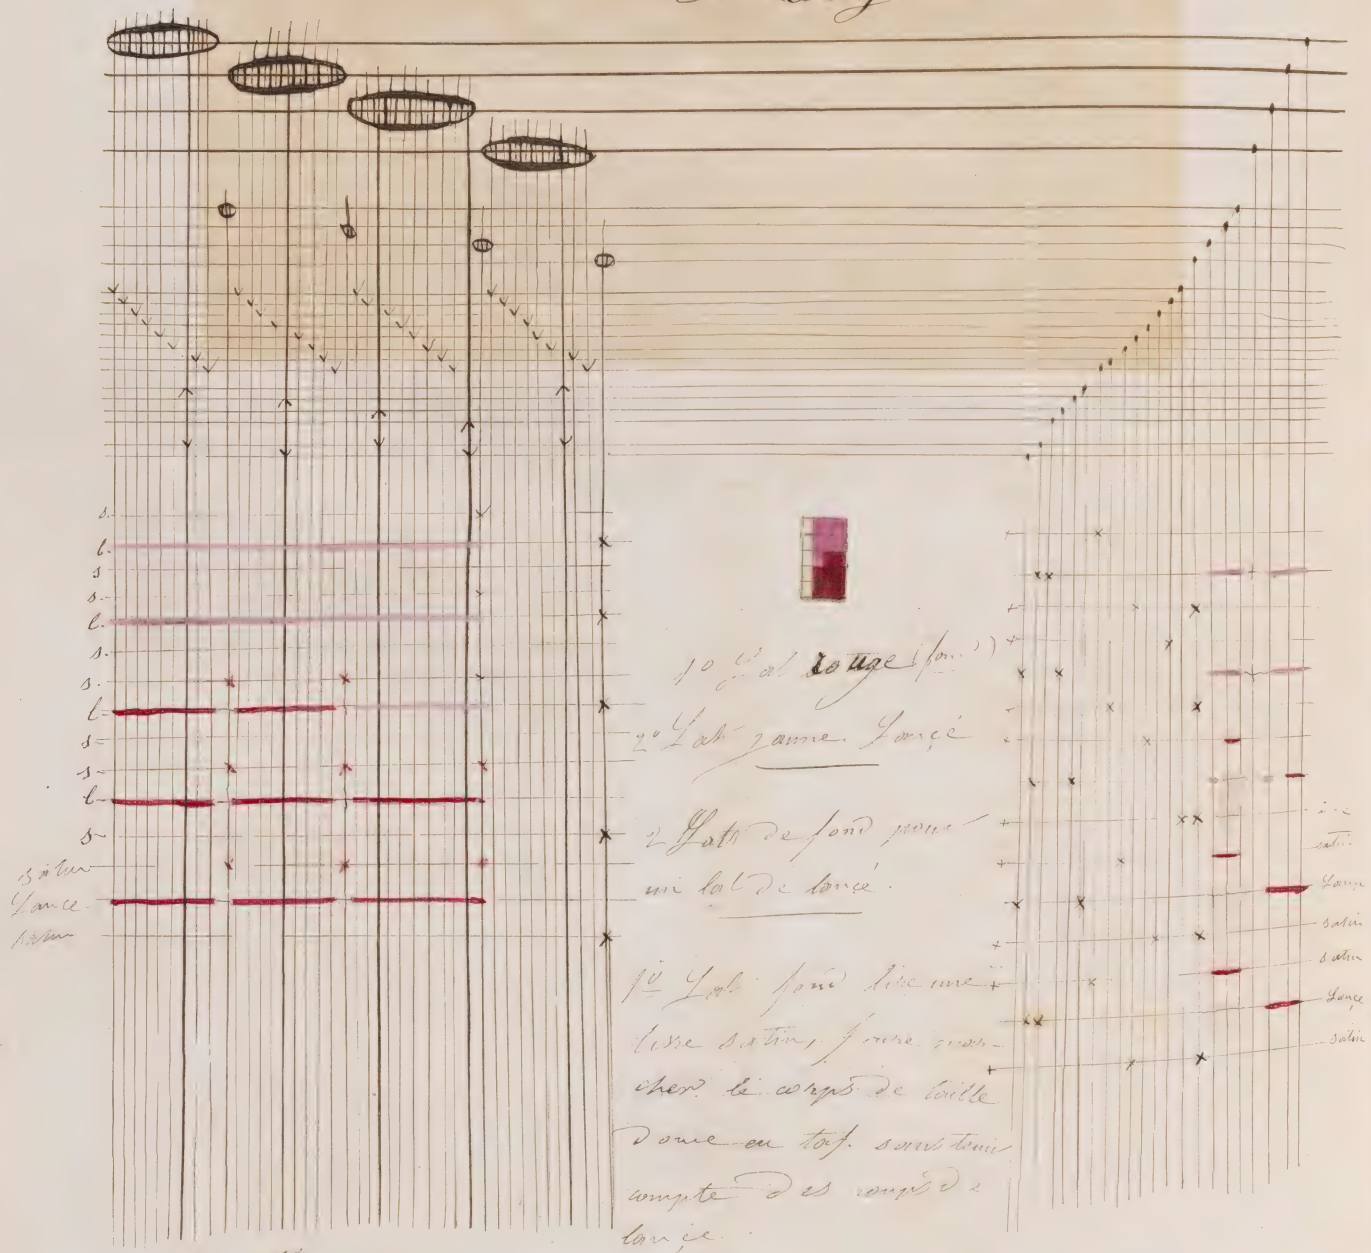 s.
l.
s
s.
l.
s.
s.
l.
s
s
l
s
satin
Lance
satin
1º Lat rouge (fond)
2º Lat jaune Lançé
2 Lats de fond pour
un lat de lançé.
1º Lat fond lire une
lisse satin, faire mar-
cher le corps de
en taf. sans tenir
compte des coups de
lançe.
satin
Lançe
satin
satin
Lançe
satin